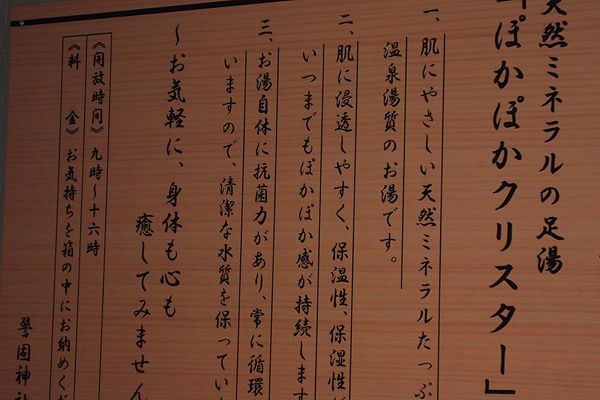 天然ミネラルの足湯
「ぽかぽかクリスター」
一、肌にやさしい天然ミネラルたっぷ
温泉湯質のお湯です。
二、肌に浸透しやすく、保温性、保湿性が
いつまでもぽかぽか感が持続します
三、お湯自体に抗菌力があり、常に循環
いますので、清潔な水質を保ってい
～お気軽に、身体も心も
癒してみません
《開放時間》 九時～十六時
《料 金》 お気持ちを箱の中にお納めくだ
警固神社